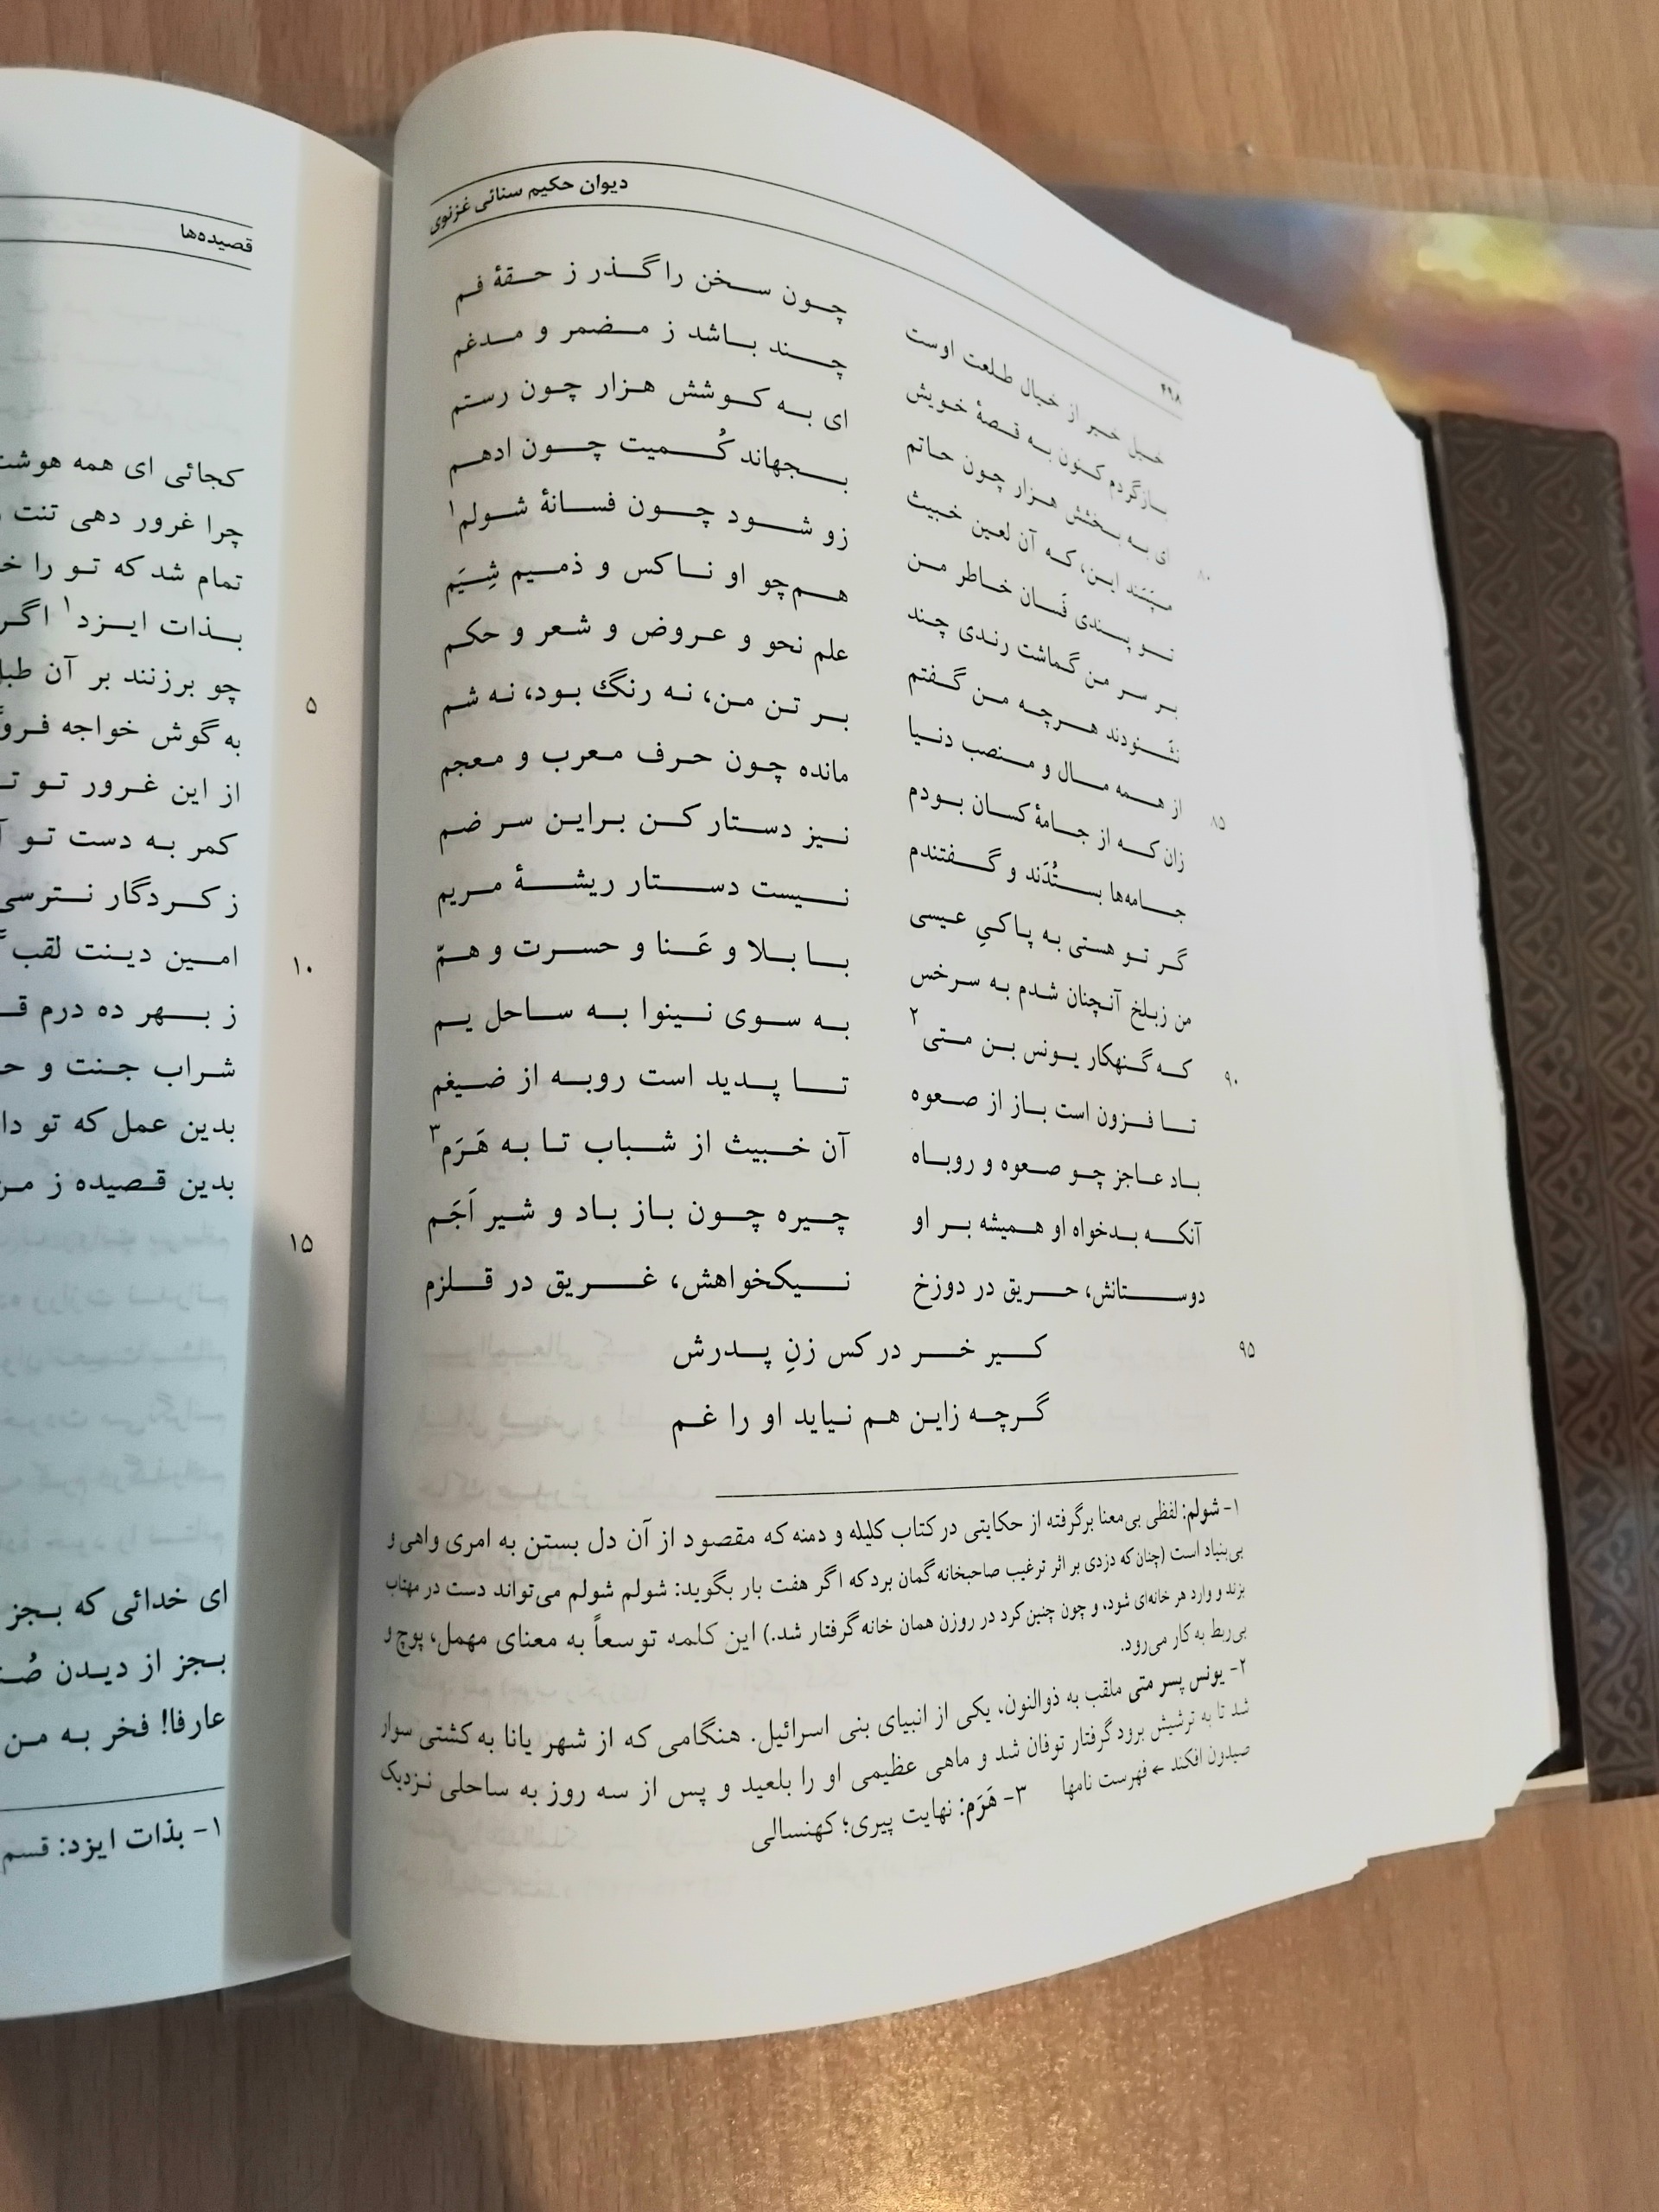 ۴۹۸
دیوان حکیم سنائی غزنوی
خیل خبر از خیال طلعت اوست
چون سخن را گذر ز حقهٔ فم
بازگردم کنون به قصهٔ خویش
چند باشد ز مضمر و مدغم
ای به بخشش هزار چون حاتم
ای به کوشش هزار چون رستم
۸۰
مپسند این، که آن لعین خبیث
بجهاند کُمیت چون ادهم
تو پسندی فَسان خاطر من
زو شود چون فسانهٔ شولم۱
بر سر من گماشت رندی چند
هم‌چو او ناکس و ذمیم شِیَم
نشنودند هرچه من گفتم
علم نحو و عروض و شعر و حکم
از همه مال و منصب دنیا
بر تن من، نه رنگ بود، نه شم
۸۵
زان که از جامهٔ کسان بودم
مانده چون حرف معرب و معجم
جامه‌ها بستُدَند و گفتندم
نیز دستار کن براین سر ضم
گر تو هستی به پاکیِ عیسی
نیست دستار ریشهٔ مریم
من زبلخ آنچنان شدم به سرخس
با بلا و عَنا و حسرت و همّ
که گنهکار یونس بن متی۲
به سوی نینوا به ساحل یم
۹۰
تا فزون است باز از صعوه
تا پدید است روبه از ضیغم
باد عاجز چو صعوه و روباه
آن خبیث از شباب تا به هَرَم۳
آنکه بدخواه او همیشه بر او
چیره چون باز باد و شیر اَجَم
دوستانش، حریق در دوزخ
نیکخواهش، غریق در قلزم
۹۵
کیر خر در کس زنِ پدرش
گرچه زاین هم نیاید او را غم
۱- شولم: لفظی بی‌معنا برگرفته از حکایتی در کتاب کلیله و دمنه که مقصود از آن دل بستن به امری واهی و
بی‌بنیاد است (چنان‌که دزدی بر اثر ترغیب صاحبخانه گمان برد که اگر هفت بار بگوید: شولم شولم می‌تواند دست در مهتاب
بزند و وارد هر خانه‌ای شود، و چون چنین کرد در روزن همان خانه گرفتار شد.) این کلمه توسعاً به معنای مهمل، پوچ و
بی‌ربط به کار می‌رود.
۲- یونس پسر متی ملقب به ذوالنون، یکی از انبیای بنی اسرائیل. هنگامی که از شهر یانا به کشتی سوار
شد تا به ترشیش برود گرفتار توفان شد و ماهی عظیمی او را بلعید و پس از سه روز به ساحلی نزدیک
صیدون افکند ← فهرست نامها
۳- هَرَم: نهایت پیری؛ کهنسالی
قصیده‌ها
کجائی ای همه هوشت
چرا غرور دهی تنت
تمام شد که تو را
بذات ایزد۱ اگر
۵
چو برزنند بر آن
به گوش خواجه
از این غرور تو
کمر به دست تو
ز کردگار نترسی
۱۰
امین دینت لقب
ز بهر ده درم
شراب جنت و
بدین عمل که تو
بدین قصیده ز
۱۵
ای خدائی که بجز
بجز از دیدن
عارفا! فخر به من
۱- بذات ایزد: قسم